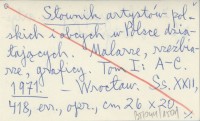 Słownik artystów pol-
skich i obcych w Polsce dzia-
łających. Malarze, rzeźbia-
rze, graficy. Tom I: A-C.
1971. - Wrocław. Ss. XXII,
418, err., opr., cm 26 x 20.